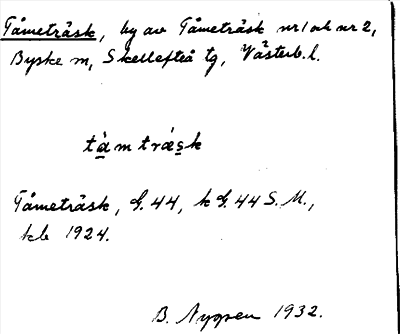 Tåmeträsk, by av Tåmeträsk nr 1 och nr 2,
Byske sn, Skellefteå tg, Västerb. l.
tå̀mtrǽsk
Tåmeträsk, G. 44, k G. 44 S. M.,
kb 1924.
B. Nygren 1932.